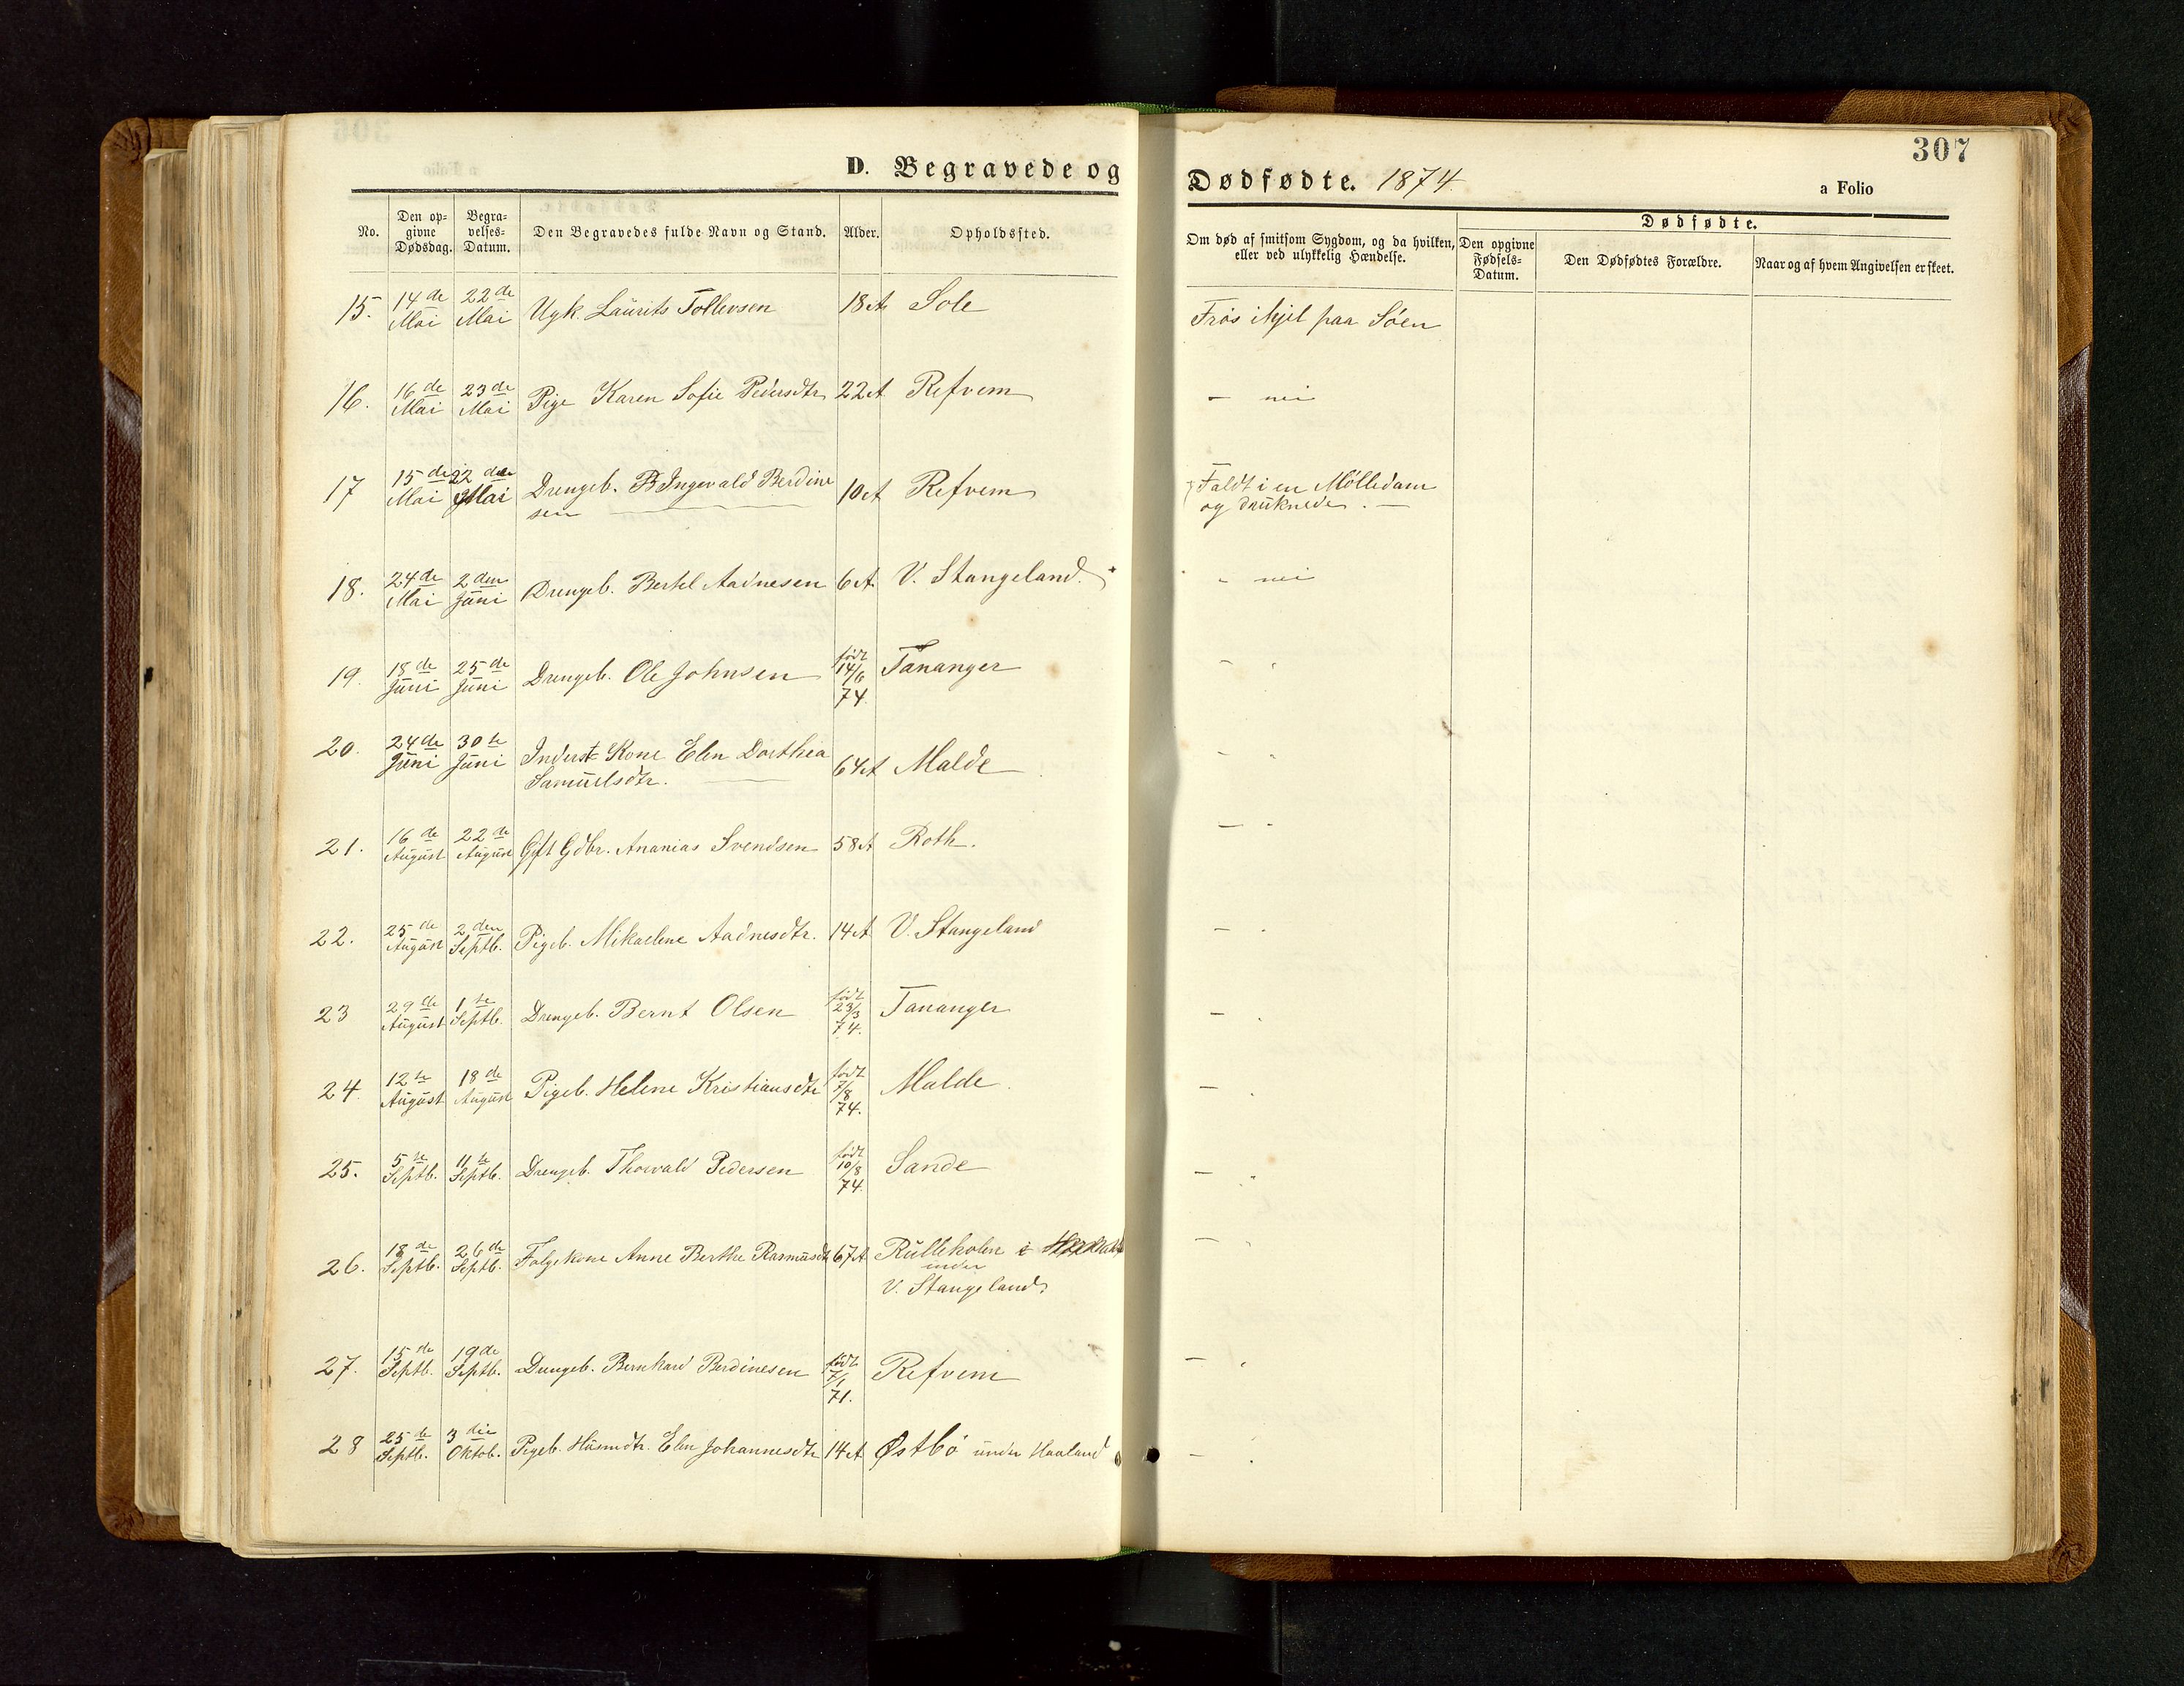 307
D. Begravede og Dødfødte. 1874
a Folio
No. Den opgivne Dødsdag. Begravelses-Datum. Den Begravedes fulde Navn og Stand. Alder. Opholdssted. Om død af smitsom Sygdom, og da hvilken, eller ved ulykkelig Hændelse. Dødfødte. Den opgivne Fødsels-Datum. Den Dødfødtes Forældre. Naar og af hvem Angivelsen er skeet.
15. 14de Mai 22de Mai Ugk. Laurits Tollevsen 18 A Sole Frøs ihjel paa Søen
16. 16de Mai 23de Mai Pige Karen Sofie Pedersdtr 22 A Refvem - nei
17 15de Mai 22den Mai Drengeb. B Ingevald Berdinesen 10 A Refvem Faldt i en Mølledam
og druknede. -
18. 24de Mai 2den Juni Drengeb. Bertel Aadnesen 6 A. V. Stangeland. - nei
19. 18de Juni 25de Juni Drengeb. Ole Johnsen født 14/6 74 Tananger - "
20. 24de Juni 30te Juni Inderst Kone Elen Dorthea
Samuelsdtr. 64 A Malde - "
21. 16de August 22de August Gift Gdbr. Ananias Svendsen 58 A Roth. - "
22. 25de August 2den Septb. Pigeb. Mikaeline Aadnesdtr. 14 A V. Stangeland - "
23 29de August 1te Septb. Drengeb. Bernt Olsen født 23/3 74. Tananger - "
24. 12te August 18de August Pigeb. Helene Kristiansdtr født 7/8 74. Malde. - "
25. 5te Septb. 11te Septb. Drengeb. Thorvald Pedersen født 10/8 74. Sande - "
26. 18de Septb. 26de Septb. Folgekone Anne Berthe Rasmusdtr 67 A Rulleholen
under
V. Stangeland - "
27. 15de Septb. 19de Septb. Drengeb. Bernhard Berdinesen født 7/1 71. Refvem - "
28 25de Septb. 3die Oktob. Pigeb. Husmdtr. Elen Johannesdtr 14 A Østbø under Haaland - "